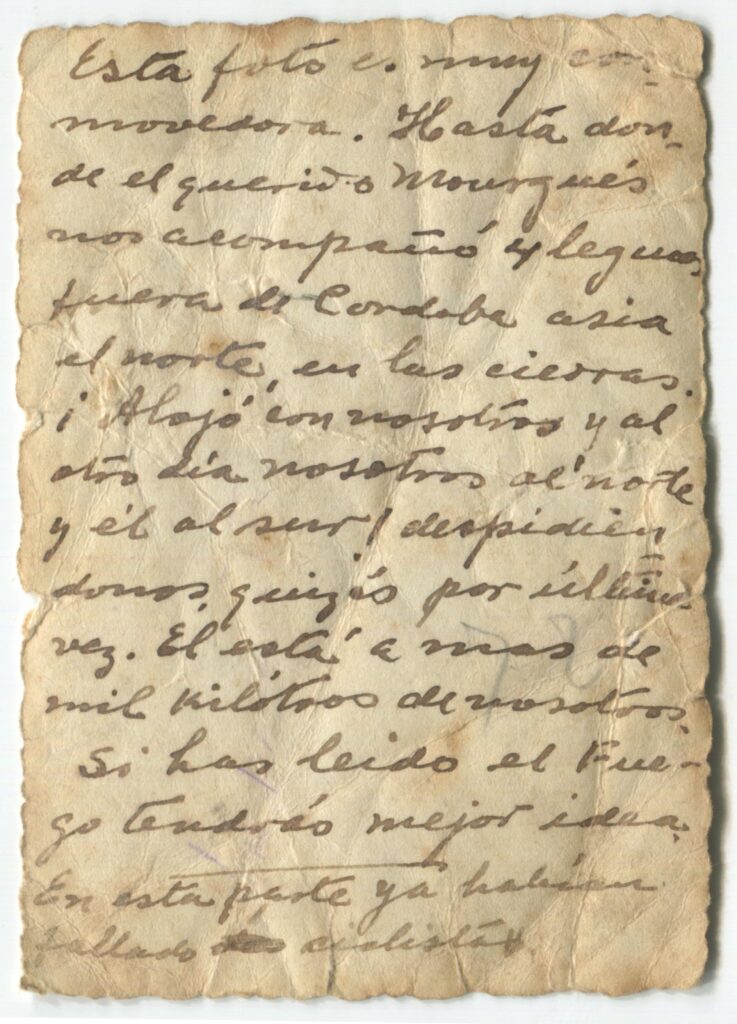 Esta foto es muy con-
movedora. Hasta don-
de el querido Mourgués
nos acompañó 4 leguas
fuera de Cordoba asia
el norte, en las cierras.
¡Alojó con nosotros y al
otro día nosotros al norte
y él al sur! despidien
donos, quizás por última
vez. El está a mas de
mil kilótros de nosotros.
Si has leido el Fue-
go tendrás mejor idea.
En esta parte ya habían
fallado ciclistas.